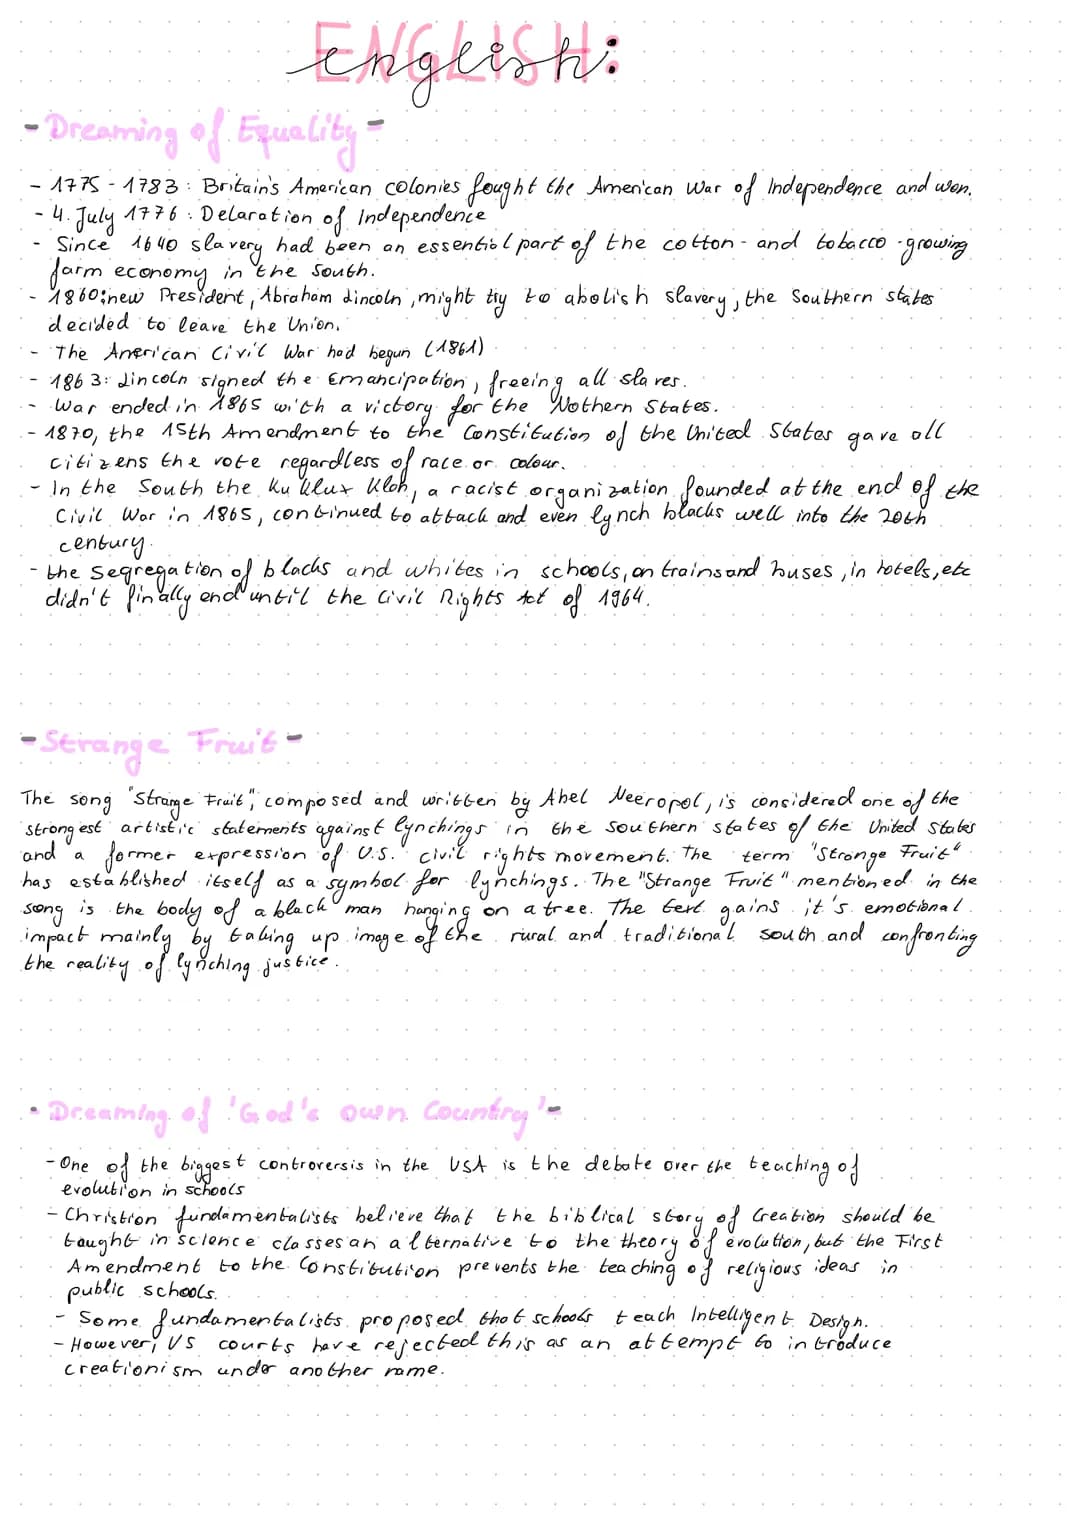 ENGLISH:
english:
- Dreaming of Equality -
- 1775 - 1783: Britain's American colonies fought the American War of Independence and won.
- 4. July 1776: Delaration of Independence
- Since 1640 slavery had been an essential part of the cotton- and tobacco-growing
farm economy in the South.
- 1860: new President, Abraham Lincoln, might try to abolish slavery, the Southern states
decided to leave the Union.
- The American Civil War had begun (1861)
- 1863: Lincoln signed the Emancipation, freeing all slaves.
- War ended in 1865 with a victory for the Nothern States.
- 1870, the 15th Amendment to the Constitution of the United States gave all
citizens the vote regardless of race or colour.
- In the South the Ku Klux Klan, a racist organization founded at the end of the
Civil War in 1865, continued to attack and even lynch blacks well into the 20th
century.
- the segregation of blacks and whites in schools, on trains and buses, in hotels, etc
didn't finally end until the Civil Rights Act of 1964.
- Strange Fruit -
The song "Strange Fruit", composed and written by Abel Meeropol, is considered one of the
strongest artistic statements against lynchings in the southern states of the United States
and a former expression of U.S. civil rights movement. The term "Strange Fruit"
has established itself as a symbol for lynchings. The "Strange Fruit" mentioned in the
song is the body of a black man hanging on a tree. The text gains it's emotional
impact mainly by taking up image of the rural and traditional south and confronting
the reality of lynching justice.
- Dreaming of 'God's own Country' -
- One of the biggest controversis in the USA is the debate over the teaching of
evolution in schools
- Christian fundamentalists believe that the biblical story of Creation should be
taught in science classes an alternative to the theory of evolution, but the First
Amendment to the Constitution prevents the teaching of religious ideas in
public schools.
- Some fundamentalists proposed that schools teach Intelligent Design.
- However, US courts have rejected this as an attempt to introduce
creationism under another name.